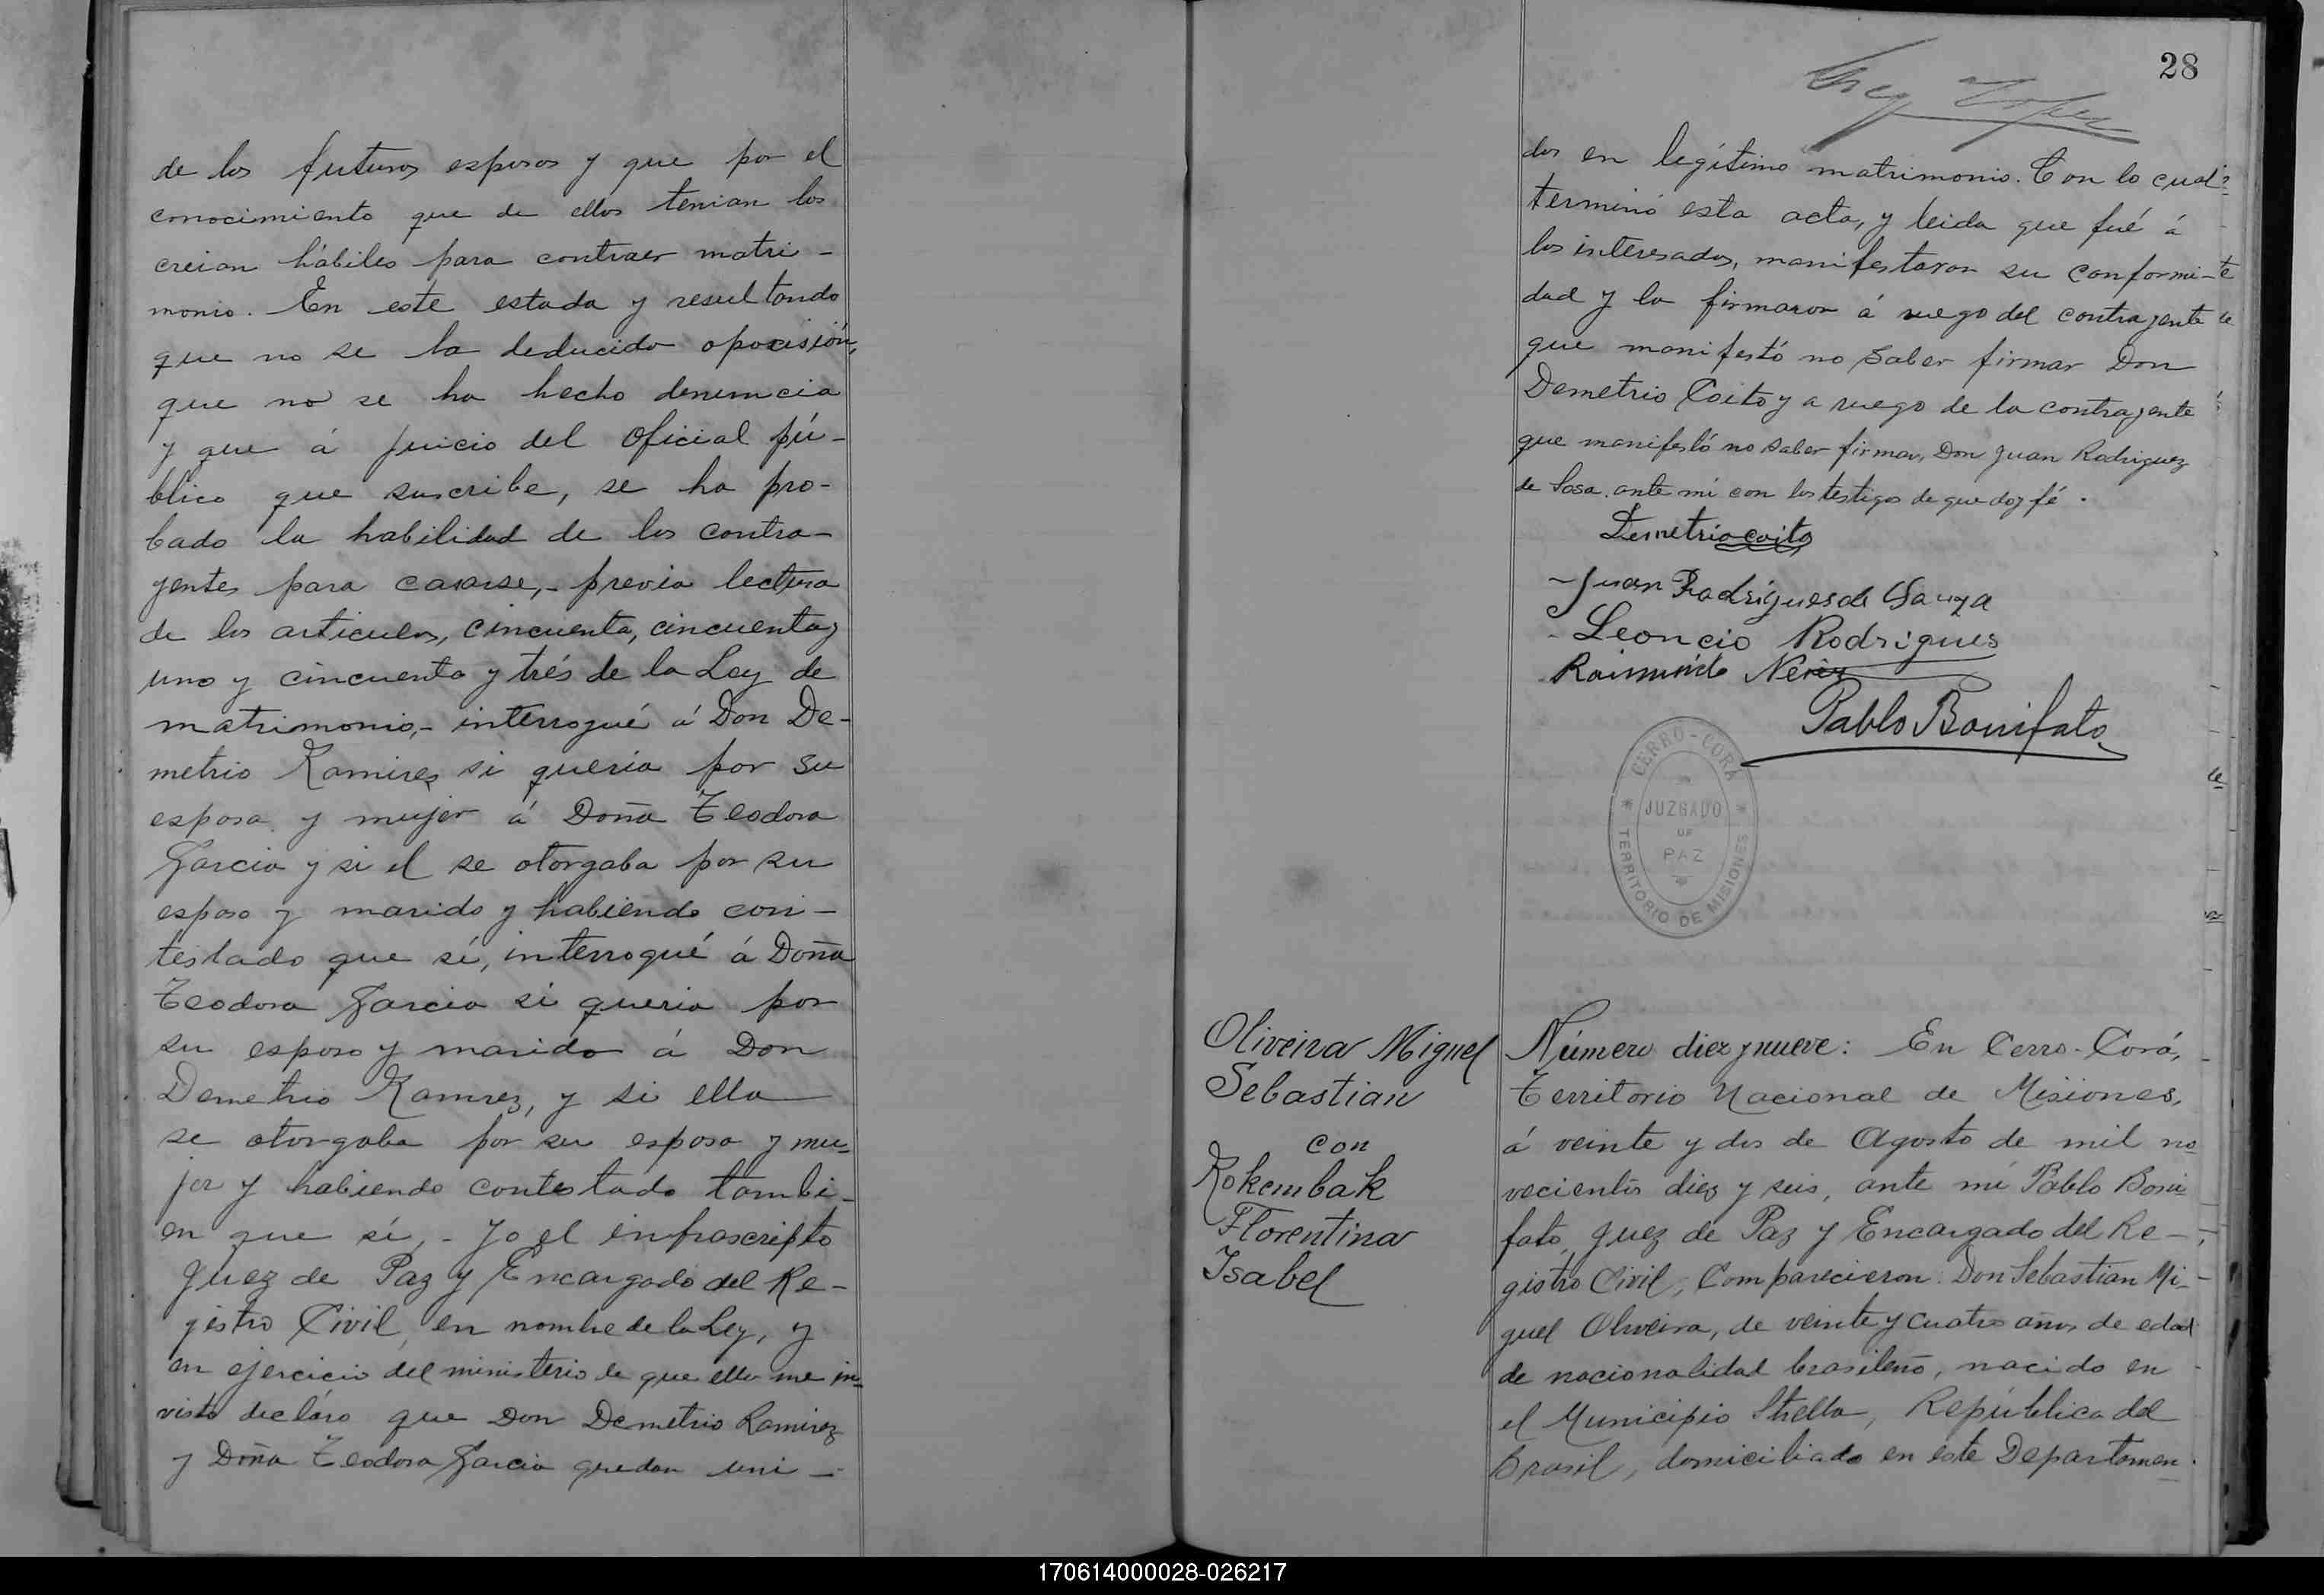 de los futuros esposos y que por el
conocimiento que de ellos tenian los
creian hábiles para contraer matri-
monio. En este estado y resultando
que no se ha deducido oposisión,
que no se ha hecho denuncia
y que á juicio del Oficial pú-
blico que suscribe, se ha pro-
bado la habilidad de los contra-
yentes para casarse,- previa lectura
de los articulos, cincuenta, cincuenta y
uno y cincuenta y trés de la Ley de
matrimonio,- interrogué á Don De-
metrio Ramires si queria por su
esposa y mujer á Doña Teodora
Garcia y si el se otorgaba por su
esposo y marido y habiendo con-
testado que sí, interrogué á Doña
Teodora Garcia si queria por
su esposo y marido á Don
Demetrio Ramirez, y si ella
se otorgaba por su esposa y mu-
jer y habiendo contestado tambi-
en que sí,- Yo el infrascripto
Juez de Paz y Encargado del Re-
gistro Civil, en nombre de la Ley, y
en ejercicio del ministerio de que ella me in-
viste decláro que Don Demetrio Ramirez
y Doña Teodora Garcia quedan uni-
28
dos en legítimo matrimonio. Con lo cual
terminó esta acta, y leida que fué á
los interesados, manifestaron su conformi-
dad y la firmaron á ruego del contrayente
que manifestó no saber firmar Don
Demetrio Coito y a ruego de la contrayente
que manifestó no saber firmar, Don Juan Rodriguez
de Sosa, ante mí con los testigos de que doy fé.
Demetrio Coito
Juan Rodrigues de Sauza
Leoncio Rodrigues
Raimundo
Pablo Bonifato
CERRO-CORÁ
JUZGADO
DE
PAZ
TERRITORIO DE MISIONES
Oliveira Miguel
Sebastian
con
Rokembak
Florentina
Isabel
Número diez y nueve: En Cerro-Corá,
Territorio Nacional de Misiones,
á veinte y dos de Agosto de mil no
vecientos diez y seis, ante mi Pablo Boni-
fato, Juez de Paz y Encargado del Re-
gistro Civil, Comparecieron: Don Sebastian Mi-
guel Oliveira, de veinte y cuatro años de edad
de nacionalidad brasileño, nacido en
el Municipio Strella, República del
Brasil, domiciliado en este Departamen-
170614000028-026217